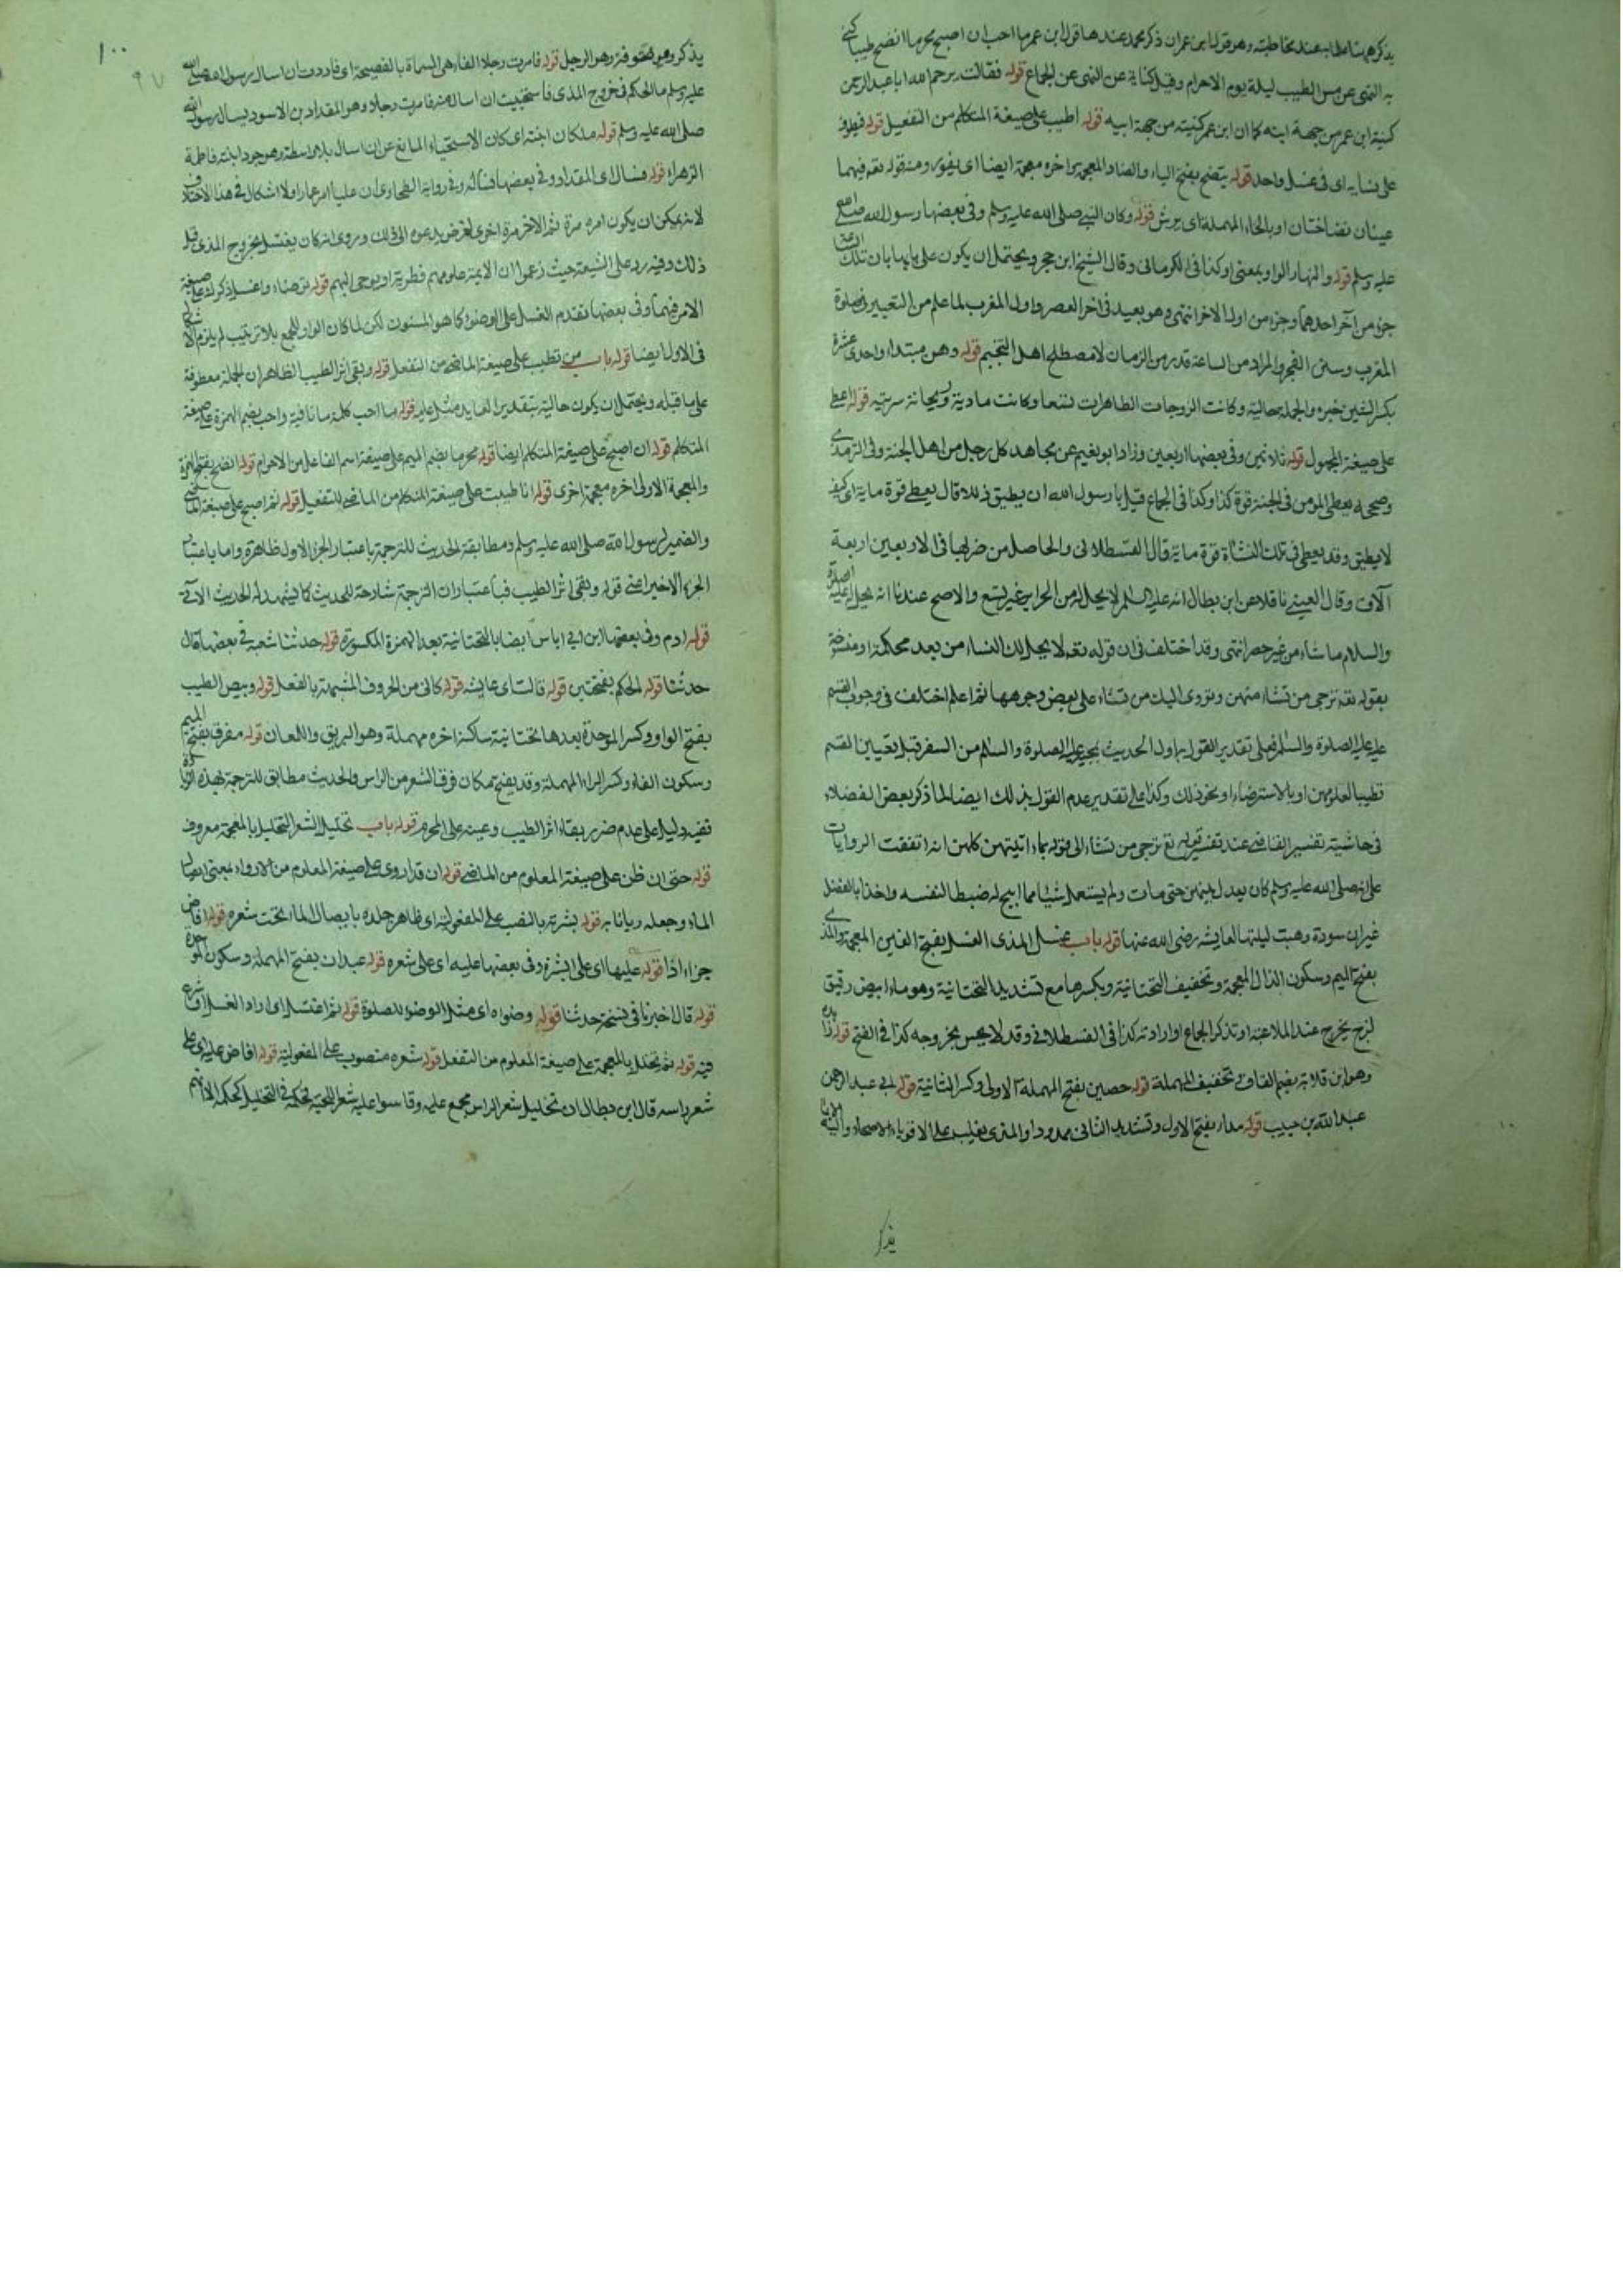 يذكرهم بنا خطا به عند مخاطبته وهو قول ابن عمران ذكر محمد عندها قول ابن عمر ما احب ان اصبح محرما انضح طيبا كنى
به النهى عن مس الطيب ليلة يوم الاحرام وقيل كناية عن النهى عن الجماع قوله فقالت يرحم الله ابا عبد الرحمن
كنية ابن عمر من جهة ابنه كما ان ابن عمر كنيته من جهة ابيه قوله اطيب على صيغة المتكلم من التفعيل قوله فيطوف
على نسايه اى فى غسل واحد قوله ينضح بفتح الياء والضاد المعجمة اخره مهملة ايضا اى يفور ومنه قوله تعه فيهما
عينان نضاختان او بالحاء المهملة اى يرش قوله وكان النبي صلى الله عليه وسلم وفى بعضها رسول الله صلى الله
عليه وسلم قوله والنهار الواو بمعنى او كذا فى الكرمانى وقال الشيخ ابن حجر ويحتمل ان يكون على بابها بان تلك الساعة
جزء من آخر احدهما وجزء من اول الاخر انتهى وهو بعيد فى اخر العصر واول المغرب لما علم من التعبير فى صلوة
المغرب وسنن الفجر والمراد من الساعة قدر من الزمان لا مصطلح اهل التنجيم قوله وهن مبتداء واحدى عشرة
بكسر الشين خبره والجملة حالية وكانت الزوجات الطاهرات تسعا وكانت مارية وريحانة سريته قوله اعطى
على صيغة المجهول قوله ثلاثين وفى بعضها اربعين وزاد ابو نعيم عن مجاهد كل رجل من اهل الجنة وفى الترمذى
وصححه يعطى المؤمن فى الجنة قوة كذا وكذا فى الجماع قيل يا رسول الله او يطيق ذلك قال يعطى قوة ماية اى كيف
لا يطيق وقد يعطى فى تلك النشاة قوة ماية قال القسطلانى والحاصل من ضربها فى الاربعين اربعة
آلاف وقال العينى ناقلا عن ابن بطال انه عليه السلام لا يحل له من الحراير غير تسع والاصح عندنا انه يحل له عليه الصلوة
والسلام ما شاء من غير حصر انتهى وقد اختلف فى ان قوله تعه لا يحل لك النساء من بعد محكمة او منسوخة
بقوله تعه ترجى من تشاء منهن وتؤوى اليك من تشاء على بعض وجوهها ثم اعلم اختلف فى وجوب القسم
عليه عليه الصلوة والسلام فعلى تقدير القول به اول الحديث بمجيه عليه الصلوة والسلام من السفر قبل تعيين القسم
تطييبا لقلوبهن او بالاسترضاء او نحو ذلك وكذا على تقدير عدم القول بذلك ايضا لما ذكر بعض الفضلاء
فى حاشية تفسير القاضى عند تفسير قوله تع ترجى من تشاء الى قوله بما اتيتهن كلهن انه اتفقت الروايات
على انه صلى الله عليه وسلم كان يعدل بينهن حتى مات ولم يستعمل شيئا مما ابيح له ضبطا لنفسه واخذا بالفضل
غير ان سودة وهبت ليلتها لعايشه رضى الله عنها قوله باب غسل المذى الغسل بفتح الغين المعجمة والمذى
بفتح الميم وسكون الذال المعجمة وتخفيف التحتانية وبكسرها مع تشديد التحتانية وهو ماء ابيض رقيق
لزج يخرج عند الملاعبة او تذكر الجماع او ارادته كذا فى القسطلانى وقد لا يحس بخروجه كذا فى الفتح قوله زايدة
وهو ابن قدامة بضم القاف وتخفيف المهملة قوله حصين بفتح المهملة الاولى وكسر الثانية قوله ابى عبد الرحمن
عبد الله بن حبيب قوله مذاء بفتح الاول وتشديد الثانى ممدودا والمذى يغلب على الاقوياء الاصحاء
يذكر
١٠٠
٩٧
قوله فامرت رجلا الفاء هى المسماة بالفصيحة اى فاردت ان اسال رسول الله صلى الله
عليه وسلم ما الحكم فى خروج المذى فاستحييت ان اساله فامرت رجلا وهو المقداد بن الاسود يسال رسول الله
صلى الله عليه وسلم قوله لمكان ابنته اى كان الاستحياء المانع عن ان اسال بلا واسطة وهى وجود ابنته فاطمة
الزهراء قوله فسال اى المقداد وفى بعضها فساله وفى رواية الطحاوى ان عليا امر عمارا ولا اشكال فى هذا الاختلاف
لانه يمكن ان يكون امره مرة ثم الاخر مرة اخرى لغرض يدعوه الى ذلك وروى انه كان يغتسل بخروج المذى قبل
ذلك وفيه رد على الشيعة حيث زعموا ان الايمة علومهم فطرية او يوحى اليهم قوله توضاء واغسل ذكرك على صيغة
الامر فيهما وفى بعضها تقدم الغسل على الوضوء كما هو المسنون لكن لما كان الواو للجمع بلا ترتيب لم يلزم الاشكال
فى الاول ايضا قوله باب من تطيب على صيغة الماضى من التفعل قوله وبقى اثر الطيب الظاهر ان الجملة معطوفة
على ما قبله ويحتمل ان يكون حالية بتقدير العايد مثل عليه قوله ما احب كلمة ما نافية واحب بضم الهمزة على صيغة
المتكلم قوله ان اصبح على صيغة المتكلم ايضا قوله محرما بضم الميم على صيغة اسم الفاعل من الاحرام قوله انضح بفتح الهمزة
والمعجمة الاولى اخره معجمة اخرى قوله انا طيبت على صيغة المتكلم من الماضى للتفعيل قوله ثم اصبح على صيغة الماضى
والضمير لرسول الله صلى الله عليه وسلم ومطابقة الحديث للترجمة باعتبار الجزء الاول ظاهرة واما باعتبار
الجزء الاخير اعنى قوله وبقى اثر الطيب فباعتبار ان الترجمة شارحة للحديث كما يشهد له الحديث الاتى
قوله ادم وفى بعضها ابن ابى اياس ايضا بالتحتانية بعد الهمزة المكسورة قوله حدثنا شعبة فى بعضها قال
حدثنا قوله الحكم بفتحتين قوله قالت اى عايشه قوله كانى من الحروف المشبهة بالفعل قوله وبيص الطيب
بفتح الواو وكسر الموحدة بعدها تحتانية ساكنة اخره مهملة وهو البريق واللمعان قوله مفرق بفتح الميم
وسكون الفاء وكسر الراء المهملة وقد يفتح مكان فرق الشعر من الراس والحديث مطابق للترجمة بهذه الزيادة
ففيه دليل على عدم ضرر بقاء اثر الطيب وعينه على المحرم قوله باب تخليل الشعر التخليل بالمعجمة معروف
قوله حتى ان ظن على صيغة المعلوم من الماضى قوله ان قد اروى على صيغة المعلوم من الارواء بمعنى ايصال
الماء وجعله ريانا به قوله بشرته بالنصب على المفعولية اى ظاهر جلده بايصال الماء تحت شعره قوله افاض
جزاء اذا قوله عليها اى على البشرة وفى بعضها عليه اى على شعره قوله عبدان بفتح المهملة وسكون الموحدة
قوله قال اخبرنا فى نسخة حدثنا قوله وضوءه اى مثل الوضوء للصلوة قوله ثم اغتسل اى اراد الغسل او شرع
فيه قوله ثم تخلل بالمعجمة على صيغة المعلوم من التفعل قوله شعره منصوب على المفعولية قوله افاض عليه اى على
شعر راسه قال ابن بطال ان تخليل شعر الراس مجمع عليه وقاسوا عليه شعر اللحية فحكمه فى التخليل كحكمه الا انهم